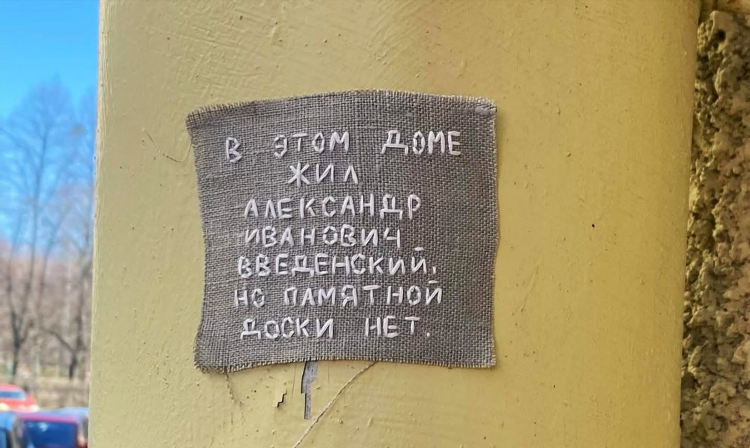 В ЭТОМ ДОМЕ
ЖИЛ
АЛЕКСАНДР
ИВАНОВИЧ
ВВЕДЕНСКИЙ,
НО ПАМЯТНОЙ
ДОСКИ НЕТ.